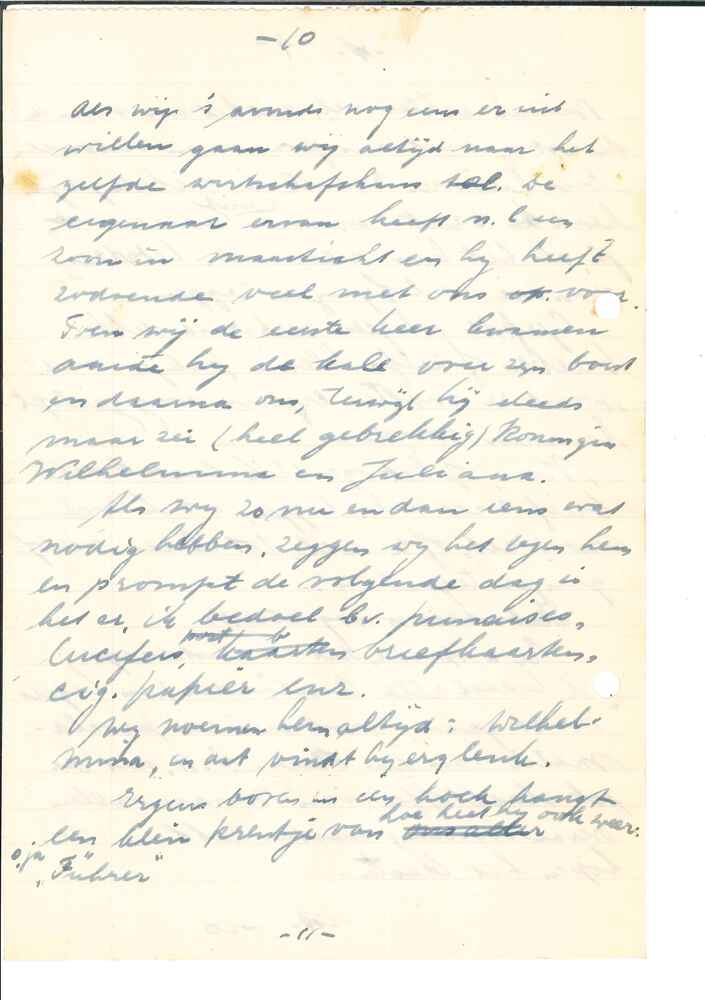 -10
Als wij 's avonds nog eens er uit
willen gaan wij altijd naar het
zelfde wirtschafshaus toe. De
eigenaar ervan heeft n.l een
zoon in maastricht en hij heeft
zodoende veel met ons op. voor.
Toen wij de eerste keer kwamen
aaide hij de kale over zijn
en daarna ons, terwijl hij steeds
maar zei (heel gebrekkig) Koningin
Wilhelmina en Juliana.
Als wij zo nu en dan eens wat
nodig hebben, zeggen wij het tegen hem
en prompt de volgende dag is
het er, ik bedoel bv. punaises,
lucifers, kaarten briefkaarten,
cig. papier enz.
Wij noemen hem altijd: Wilhel-
mina, en dat vindt hij erg leuk.
Ergens boven in een hoek hangt
een klein prentje van hoe heet hij ook weer.
o ja "Führer"
-11-